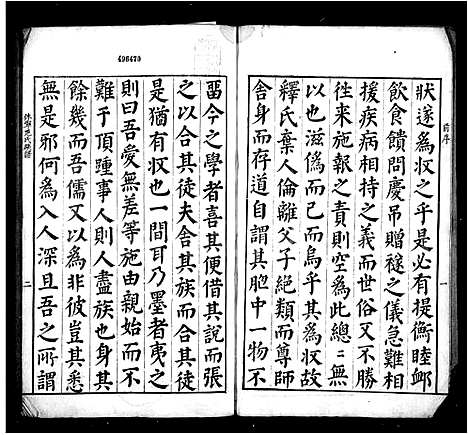 496470
前序
狀遂爲収之乎是必有提衡睦鄉
飲食饋問慶吊贈襚之儀急難相
援疾病相持之義而世俗又不勝
徃来施報之責則空爲此總總無
以也滋僞而已烏乎其爲収也
釋氏棄人倫離父子絕類而尊師
舍身而存道自謂其胞中一物不
一
畱今之學者喜其便借其說而張
之以合其徒夫舍其徒以合其徒
是猶有収也一間耳乃墨者夷之
則曰吾愛無差等施由親始而不
難于頂踵事人則人盡族也身其
餘幾而吾儒又以爲非彼豈其悉
無是邪何爲入人深且吾之所謂
二